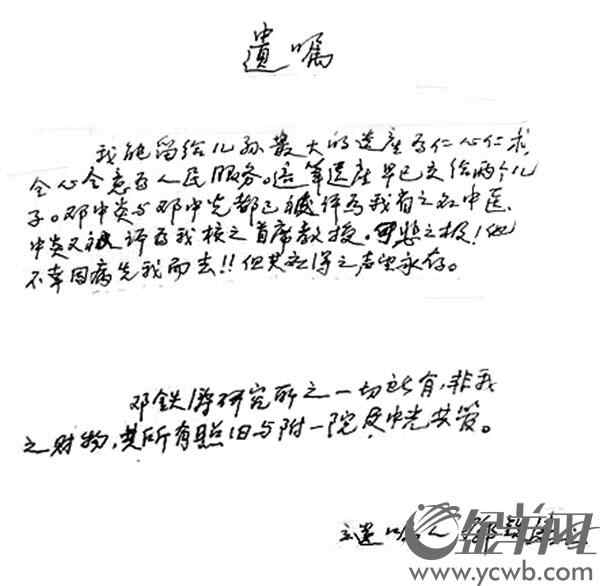 遗嘱
我能留给儿孙最大的遗产为仁心仁术,
全心全意为人民服务。这笔遗产早已交给两个儿
子。邓中炎与邓中光都已被评为我省之名中医、
中炎又被评为我校之首席教授。可悲之极!他
不幸因病先我而去!!但其应得之声望永存。
邓铁涛研究所之一切所有,非我
之财物,其所有照旧与附一院及中光共管。
立遗嘱人 邓铁涛
金羊网
www.ycwb.com